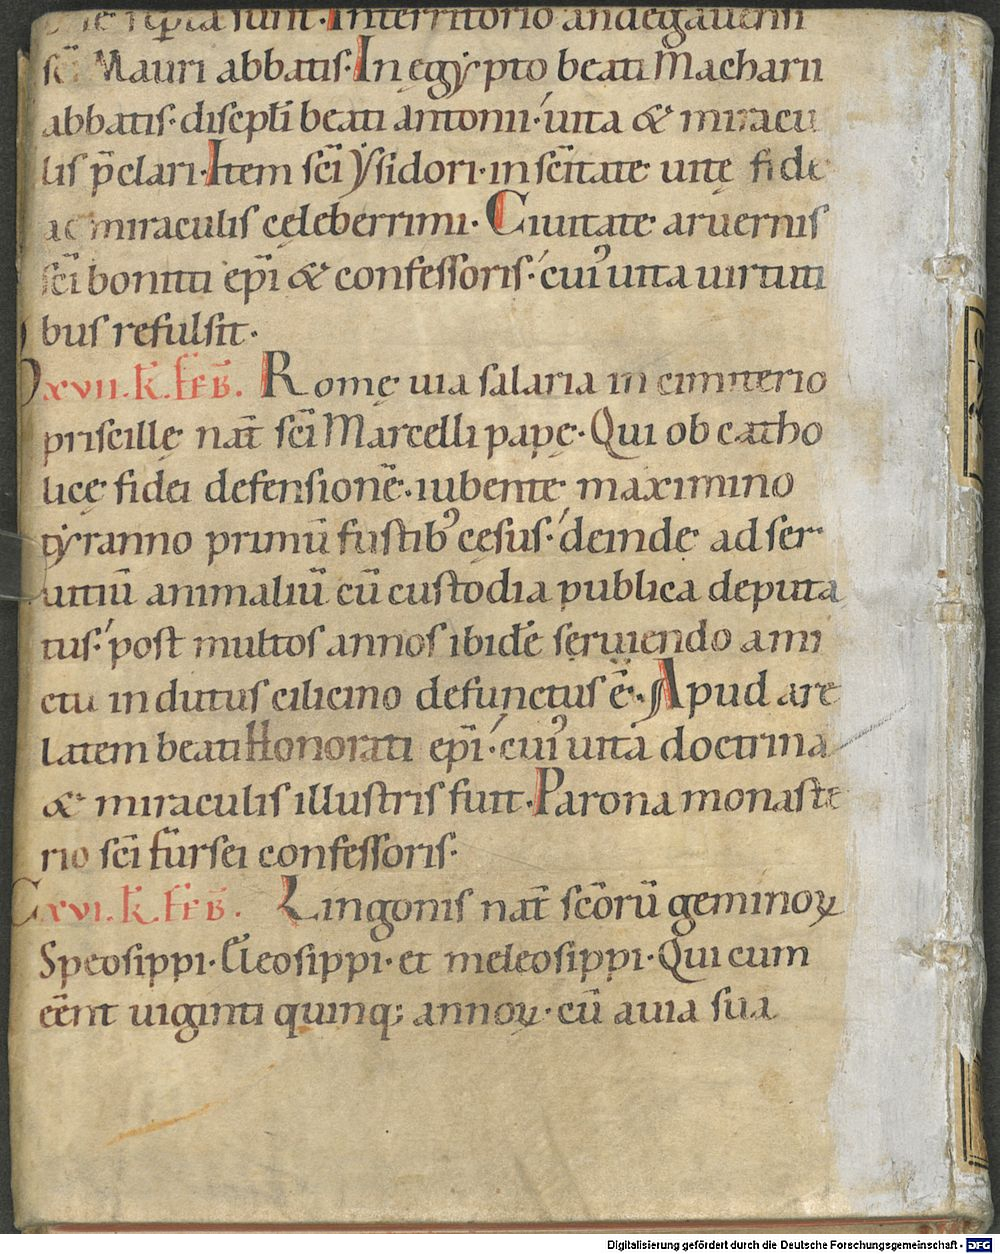 sunt. Interritorio andegavensi
Mauri abbatis. In egỳpto beati Macharii
abbatis. discipłi beati antonii. uita & miracu
lis p̄clari. Item sc̄i ẏsidori. in sc̄itate uitę fide
ac miraculis cęleberrimi. Ciuitate aruernis
sc̄i boniti ep̄i & confessoris. cuiꝰ uita uirtuti
bus refulsit.
xvii. k̄. feb̄. Romę uia salaria in cimiterio
priscillę nat̄ sc̄i Marcelli papę. Qui ob catho
licę fidei defensionē. iubente maximino
tẏranno primū fustibꝰ cęsus. deinde ad ser
uitiū animaliū cū custodia publica deputa
tus. post multos annos ibidē seruiendo ami
ctu indutus cilicino defunctus ē. Apud are
latem beati Honorati ep̄i. cuiꝰ uita doctrina
& miraculis illustris fuit. Parona monaste
rio sc̄i fursei confessoris.
xvi. k̄. feb̄. Lingonis nat̄ sc̄orū geminoꝝ
Speosippi. Eleosippi. et meleosippi. Qui cum
eēnt uiginti quinq; annoꝝ. cū auia sua
Digitalisierung gefördert durch die Deutsche Forschungsgemeinschaft - DFG